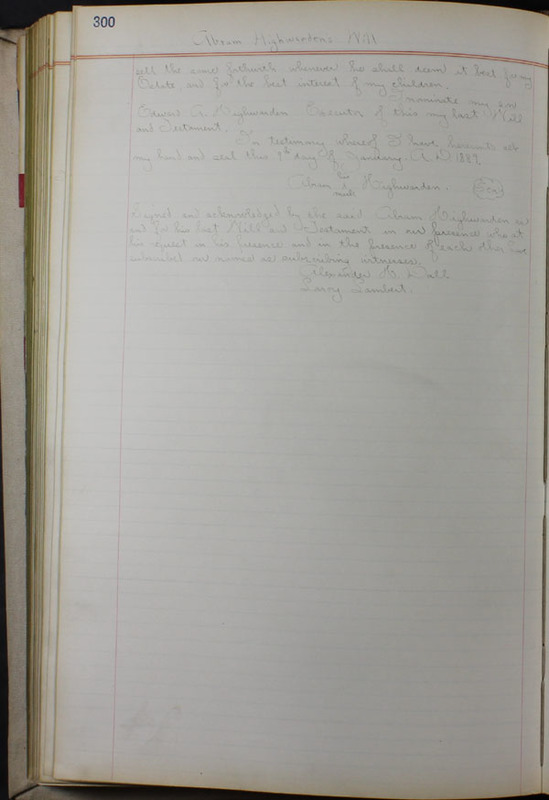 300
Abram Highwardens Will
sell the same forthwith whenever he shall deem it best for my
Estate, and for the best interest of my children.
I nominate my son
Edward A. Highwarden Executor of this my last Will
and Testament.
In testimony whereof I have hereunto set
my hand and seal this 9th day of January. A. D. 1889.
his
Abram x Highwarden. Seal
mark
Signed and acknowledged by the said Abram Highwarden as
and for his last Will and Testament in our presence who at
his request in his presence and in the presence of each other have
subscribed our names as subscribing witnesses.
H. Dall
Leroy Lambert.